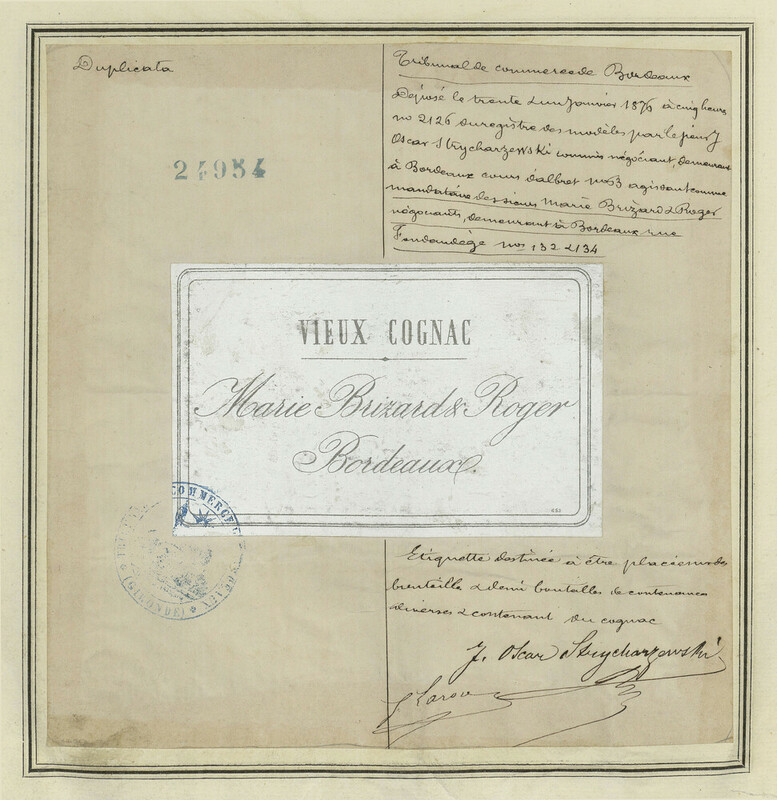 Duplicata
24954
Tribunal de commerce de Bordeaux
Déposé le trente & un Janvier 1876 à cinq heures
no 2126 du registre des modèles par le sieur J
Oscar Strycharzewski commis négociant, demeurant
à Bordeaux cours d'albret no 3 agissant comme
mandataire des sieurs Marie Brizard & Roger
négociants, demeurant à Bordeaux rue
Fondaudège nos 132 & 134
VIEUX COGNAC
Marie Brizard & Roger
Bordeaux.
COMMERCE
(GIRONDE)
Etiquette destinée à être placée sur des
bouteilles & demi bouteilles de contenances
diverses & contenant du cognac
J. Oscar Strycharzewski